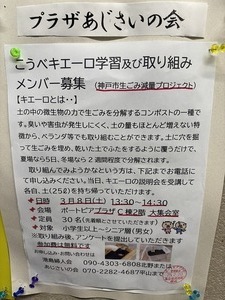 プラザあじさいの会
こうベキエーロ学習及び取り組み
メンバー募集（神戸市生ごみ減量プロジェクト）
【キエーロとは・・】
土の中の微生物の力で生ごみを分解するコンポストの一種で
す。臭いや害虫が発生しにくく、土の量もほとんど増えない特
徴から、ベランダ等でも取り組むことができます。土に穴を掘
って生ごみを埋め、乾いた土でふたをするように覆うだけで、
夏場なら5日、冬場なら2週間程度で分解されます。
取り組んでみようかなという方は、下記までお電話に
て申し込みください。当日、キエーロの説明会を受講して
各自、土(25ℓ)を持ち帰っていただけます。
日時 3月8日(土) 13:30~14:30
会場 ポートピアプラザC棟2部 大集会室
定員 30名
対象 小学生以上～シニア層(男女)
※取り組み後、アンケートを提出していただきます
参加費は無料です
お問い合わせ
港南婦人会 090-4303-6808北野または
あじさいの会 070-2282-4687平山まで